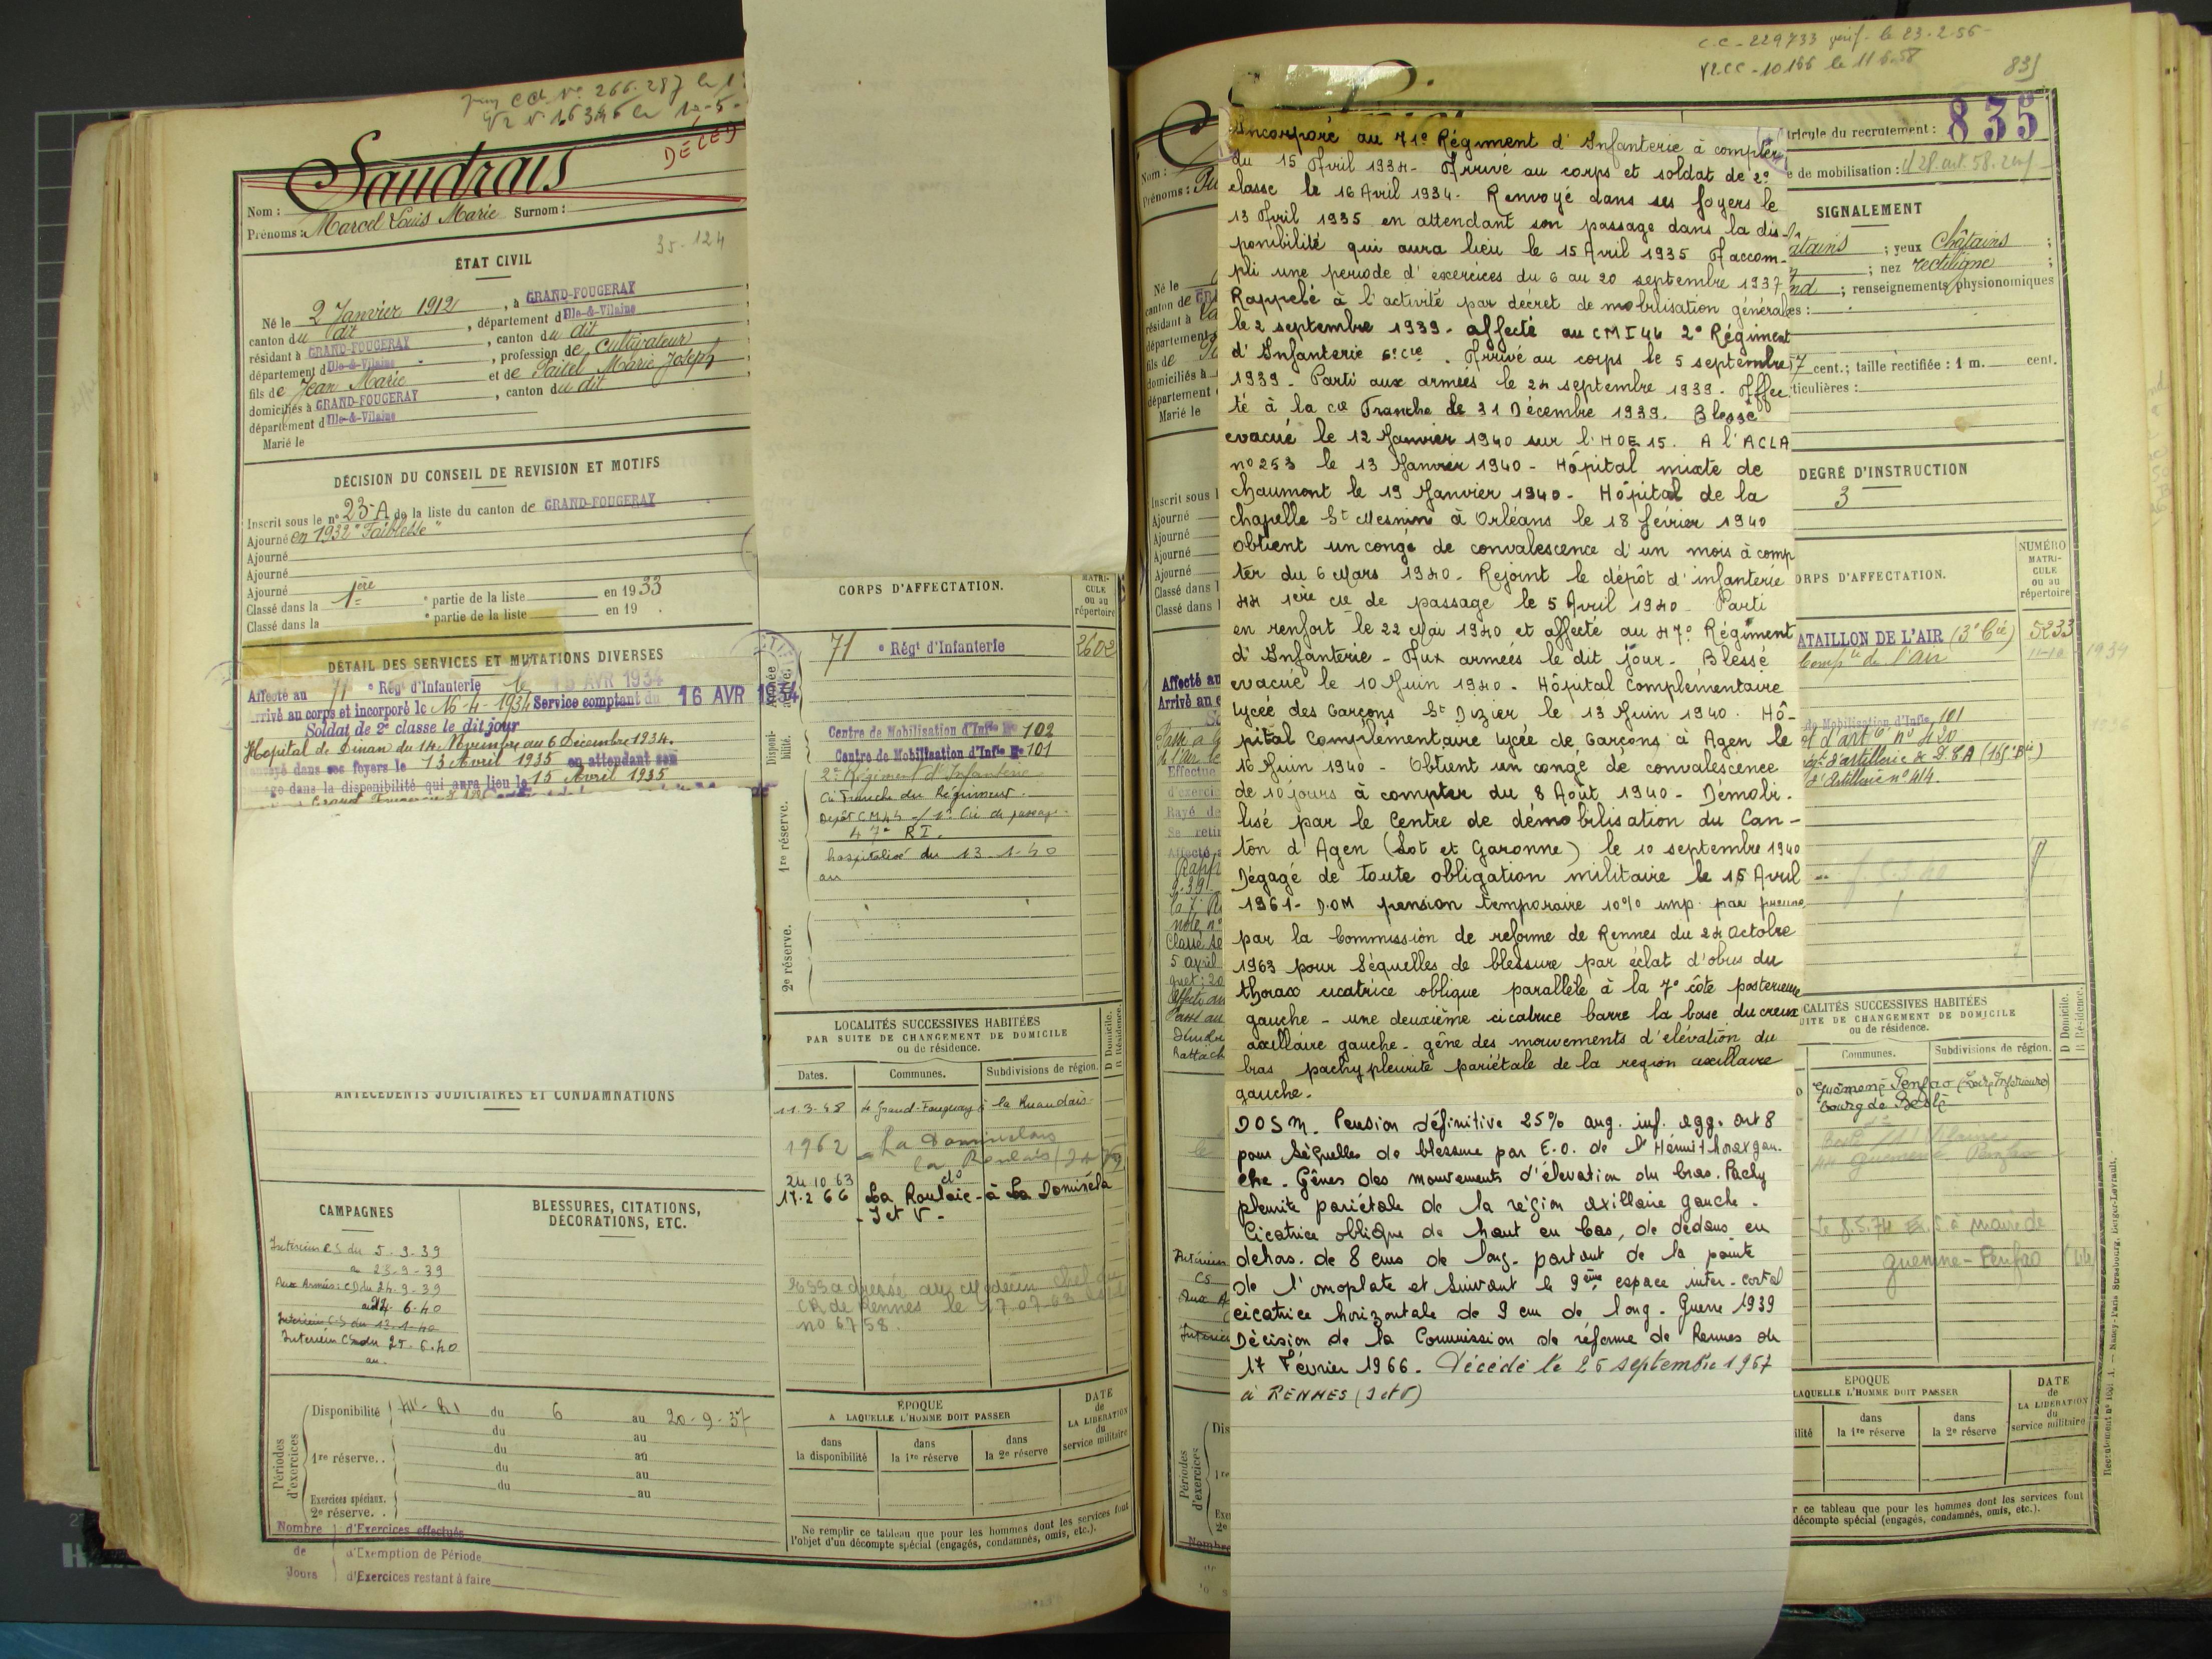 C.C. N° 266.287 le 1
V2 N° 16346 le 12-5-
DÉCÉD
Saudrais
Nom :
Prénoms : Marcel Louis Marie Surnom :
35-124
ÉTAT CIVIL
Né le 2 Janvier 1912, à GRAND-FOUGERAY
canton du dit, département d'Ille-&-Vilaine
résidant à GRAND-FOUGERAY, canton du dit
département d'Ille-&-Vilaine, profession de cultivateur
fils de Jean Marie et de Marie Joseph
domiciliés à GRAND-FOUGERAY, canton du dit
département d'Ille-&-Vilaine
Marié le
DÉCISION DU CONSEIL DE REVISION ET MOTIFS
Inscrit sous le n° 23-A de la liste du canton de GRAND-FOUGERAY
Ajourné en 1932 "Faiblesse"
Ajourné
Ajourné
Ajourné
Classé dans la 1ère partie de la liste en 1933
Classé dans la e partie de la liste en 19 .
DÉTAIL DES SERVICES ET MUTATIONS DIVERSES
Affecté au 71e Régt d'Infanterie le 15 AVR 1934
rrivé au corps et incorporé le 16-4-1934 Service comptant du 16 AVR 1934
Soldat de 2e classe le dit jour
Hopital de Dinan du 14 Novembre au 6 Décembre 1934.
dans ses foyers le 13 Avril 1935 en attendant son
ge dans la disponibilité qui aura lieu le 15 Avril 1935
ANTÉCÉDENTS JUDICIAIRES ET CONDAMNATIONS
CAMPAGNES
Intérieur CS du 5-9-39
a 23-9-39
Aux Armées: CD du 24-9-39
au 24 6-40
Intérieur CS du 13-1-40
Intérieur CS du 25-6-40
au.
BLESSURES, CITATIONS,
DÉCORATIONS, ETC.
Périodes d'exercices
Disponibilité du 6 au 20-9-37
du au
1re réserve.. du au
du au
du au
Exercices spéciaux.
2e réserve. .
Nombre de Jours
d'Exercices effectués
d'Exemption de Période
d'Exercices restant à faire
CORPS D'AFFECTATION.
MATRI-
CULE
ou au
répertoire
71e Régt d'Infanterie 2602
Disponi-
bilité.
Centre de Mobilisation d'Infie N° 102
Centre de Mobilisation d'Infie N° 101
1re réserve.
2e Régiment d'Infanterie
Cie Franche du Régiment.
Dépôt CM 44 - 1e Cie de passage
47e RI.
hospitalisé du 13-1-40
au
2e réserve.
LOCALITÉS SUCCESSIVES HABITÉES
PAR SUITE DE CHANGEMENT DE DOMICILE
ou de résidence.
D Domicile.
R Résidence.
Dates. Communes. Subdivisions de région.
11.3.48 le Grand-Fougeray à la Ruaudais
1962 La Dominelais
24 10 63 do
17-2 66 La Roulaie - à La Dominela
I et V -
CR de Rennes le 17-07-63
no 6758.
ÉPOQUE
A LAQUELLE L'HOMME DOIT PASSER
dans la disponibilité
dans la 1re réserve
dans la 2e réserve
DATE
de
LA LIBÉRATION
du
service militaire
Ne remplir ce tableau que pour les hommes dont les services font
l'objet d'un décompte spécial (engagés, condamnés, omis, etc.).
C.C - 229733 vérif. le 23-2-56
V2.CC - 10166 le 11 6-58
835
Incorporé au 71e Régiment d'Infanterie à compter
du 15 Avril 1934 - Arrivé au corps et soldat de 2e
classe le 16 Avril 1934 - Renvoyé dans ses foyers le
13 Avril 1935 en attendant son passage dans la dis-
ponibilité qui aura lieu le 15 Avril 1935 A accom-
pli une période d'exercices du 6 au 20 septembre 1937
Rappelé à l'activité par décret de mobilisation générale
le 2 septembre 1939 - affecté au CMI 44 2e Régiment
d'Infanterie 6e cie. Arrivé au corps le 5 septembre
1939 - Parti aux armées le 24 septembre 1939. Affec
té à la cie Franche de 31 Décembre 1939. Blessé
evacué le 12 Janvier 1940 sur l'HOE 15. A l'ACLA
no 253 le 13 Janvier 1940 - Hôpital mixte de
chaumont le 19 Janvier 1940 - Hôpital de la
chapelle St Mesmin à Orléans le 18 février 1940
Obtient un congé de convalescence d'un mois à comp
ter du 6 Mars 1940 - Rejoint le dépôt d'infanterie
44 1ère cie de passage le 5 Avril 1940 - Parti
en renfort le 22 Mai 1940 et affecté au 47e Régiment
d'Infanterie - Aux armées le dit jour - Blessé
evacué le 10 Juin 1940 - Hôpital Complémentaire
Lycée des Garçons St Dizier le 13 Juin 1940. Hô-
pital Complémentaire Lycée de Garçons à Agen le
16 Juin 1940 - Obtient un congé de convalescence
de 10 jours à compter du 8 Août 1940 - Démobi-
lisé par le Centre de démobilisation du Can-
ton d'Agen (Lot et Garonne) le 10 septembre 1940
Dégagé de toute obligation militaire le 15 Avril
1961 - D.O.M pension temporaire 10% imp. par
par la Commission de reforme de Rennes du 24 Octobre
1963 pour Séquelles de blessure par éclat d'obus du
thorax cicatrice oblique parallèle à la 7e côte posterieure
gauche - une deuxième cicatrice barre la base du creux
axillaire gauche - gêne des mouvements d'élévation du
bras pachypleurite pariétale de la region axillaire
gauche.
DOSM. Pension définitive 25% aug. inf. agg. art 8
pour Séquelles de blessure par E.O. de l'Hémithorax gau.
che. Gênes des mouvements d'élevation du bras. Pachy
pleurite pariétale de la région axillaire gauche.
Cicatrice oblique de haut en bas, de dedans en
dehors. de 8 cms de long. partant de la pointe
de l'omoplate et suivant le 9ème espace inter-costal
cicatrice horizontale de 9 cm de long - Guerre 1939
Décision de la Commission de réforme de Rennes du
17 Février 1966. Décédé le 26 septembre 1967
à RENNES (I et V)
Nom :
Prénoms :
Né le
canton de
résidant à
département
fils de
domiciliés à
département
Marié le
Inscrit sous l
Ajourné
Ajourné
Ajourné
Ajourné
Classé dans l
Classé dans l
Affecté au
Arrivé au c
Effectué
d'exerci
Rayé de
Se retir
Affecté
note n°
Classé
5 avril
Passé au
Rattach
Intérieur
CS
Aux A
Périodes d'exercices
tricule du recrutement : 835
e de mobilisation :
SIGNALEMENT
atains ; yeux châtains ;
; nez rectiligne ;
nd ; renseignements physionomiques
es :
7 cent.; taille rectifiée : 1 m. cent.
ticulières :
DEGRÉ D'INSTRUCTION
3
ORPS D'AFFECTATION.
NUMÉRO
MATRI-
CULE
ou au
répertoire
ATAILLON DE L'AIR (3e Cie) 5233
Compie de l'air
1934
de Mobilisation d'Infie 101
d'art ie n° 430
d'artillerie de D.C.A
d'Artillerie n° 414.
CALITÉS SUCCESSIVES HABITÉES
UITE DE CHANGEMENT DE DOMICILE
ou de résidence.
D Domicile.
R Résidence.
Communes. Subdivisions de région.
Guémené Penfao (Loire Inférieure)
bourg de Beslé
Guémené Penfao
le 8.5.74 à mairie de
guemene-Penfao (44)
ÉPOQUE
LAQUELLE L'HOMME DOIT PASSER
ilité
dans la 1re réserve
dans la 2e réserve
DATE
de
LA LIBÉRATION
du
service militaire
r ce tableau que pour les hommes dont les services font
décompte spécial (engagés, condamnés, omis, etc.).
Nancy-Paris Strasbourg, Berger-Levrault.